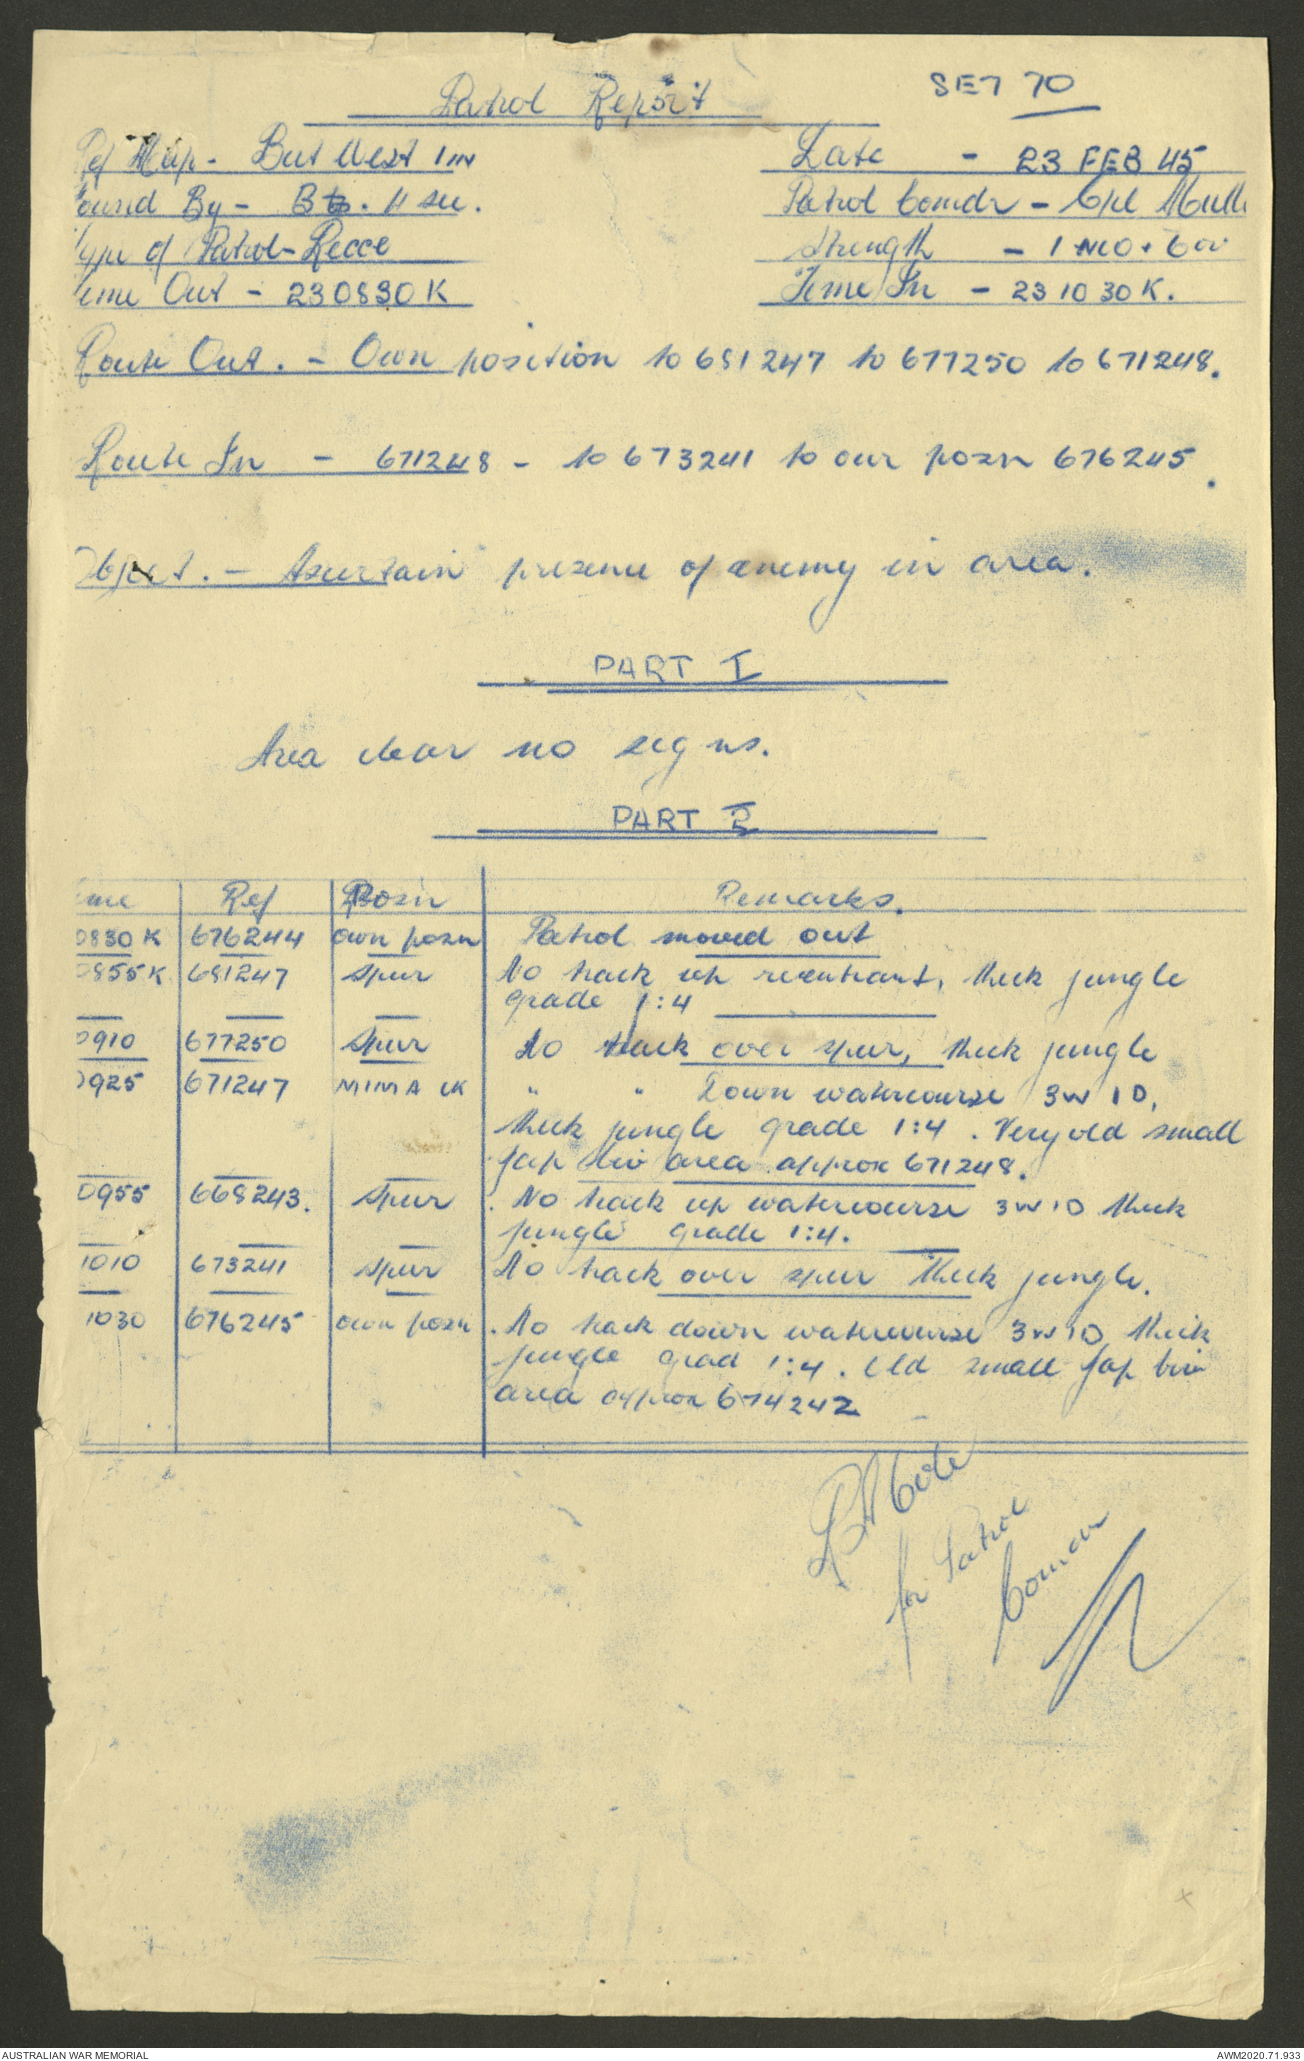 SET 70
Patrol Report
Ref Map - But West 1 in
Date - 23 FEB 45
ound By - B . 11 sec.
Patrol Comdr - Cpl Mull
ype of Patrol - Recce
Strength - 1 NCO + 6
ime Out - 230830K
Time In - 231030K.
Route Out. - Own position to 681247 to 677250 to 671248.
Route In - 671248 - to 673241 to our posn 676245.
Object. - Ascertain presence of enemy in area.
PART I
Area clear no signs.
PART 2
ime Ref Posn Remarks.
0830 K 676244 own posn Patrol moved out
0855K 681247 Spur No track up reentrant, thick jungle
grade 1:4
0910 677250 Spur No track over spur, thick jungle
0925 671247 MIMA CK " " Down watercourse 3W 1D,
thick jungle grade 1:4. Very old small
Jap biv area approx 671248.
0955 668243. Spur No track up watercourse 3W 1D thick
jungle grade 1:4.
1010 673241 Spur No track over spur thick jungle.
1030 676245 own posn No track down watercourse 3W 1D, thick
jungle grad 1:4. Old small Jap biv
area approx 674242
for Patrol
Comdr
AUSTRALIAN WAR MEMORIAL
AWM2020.71.933